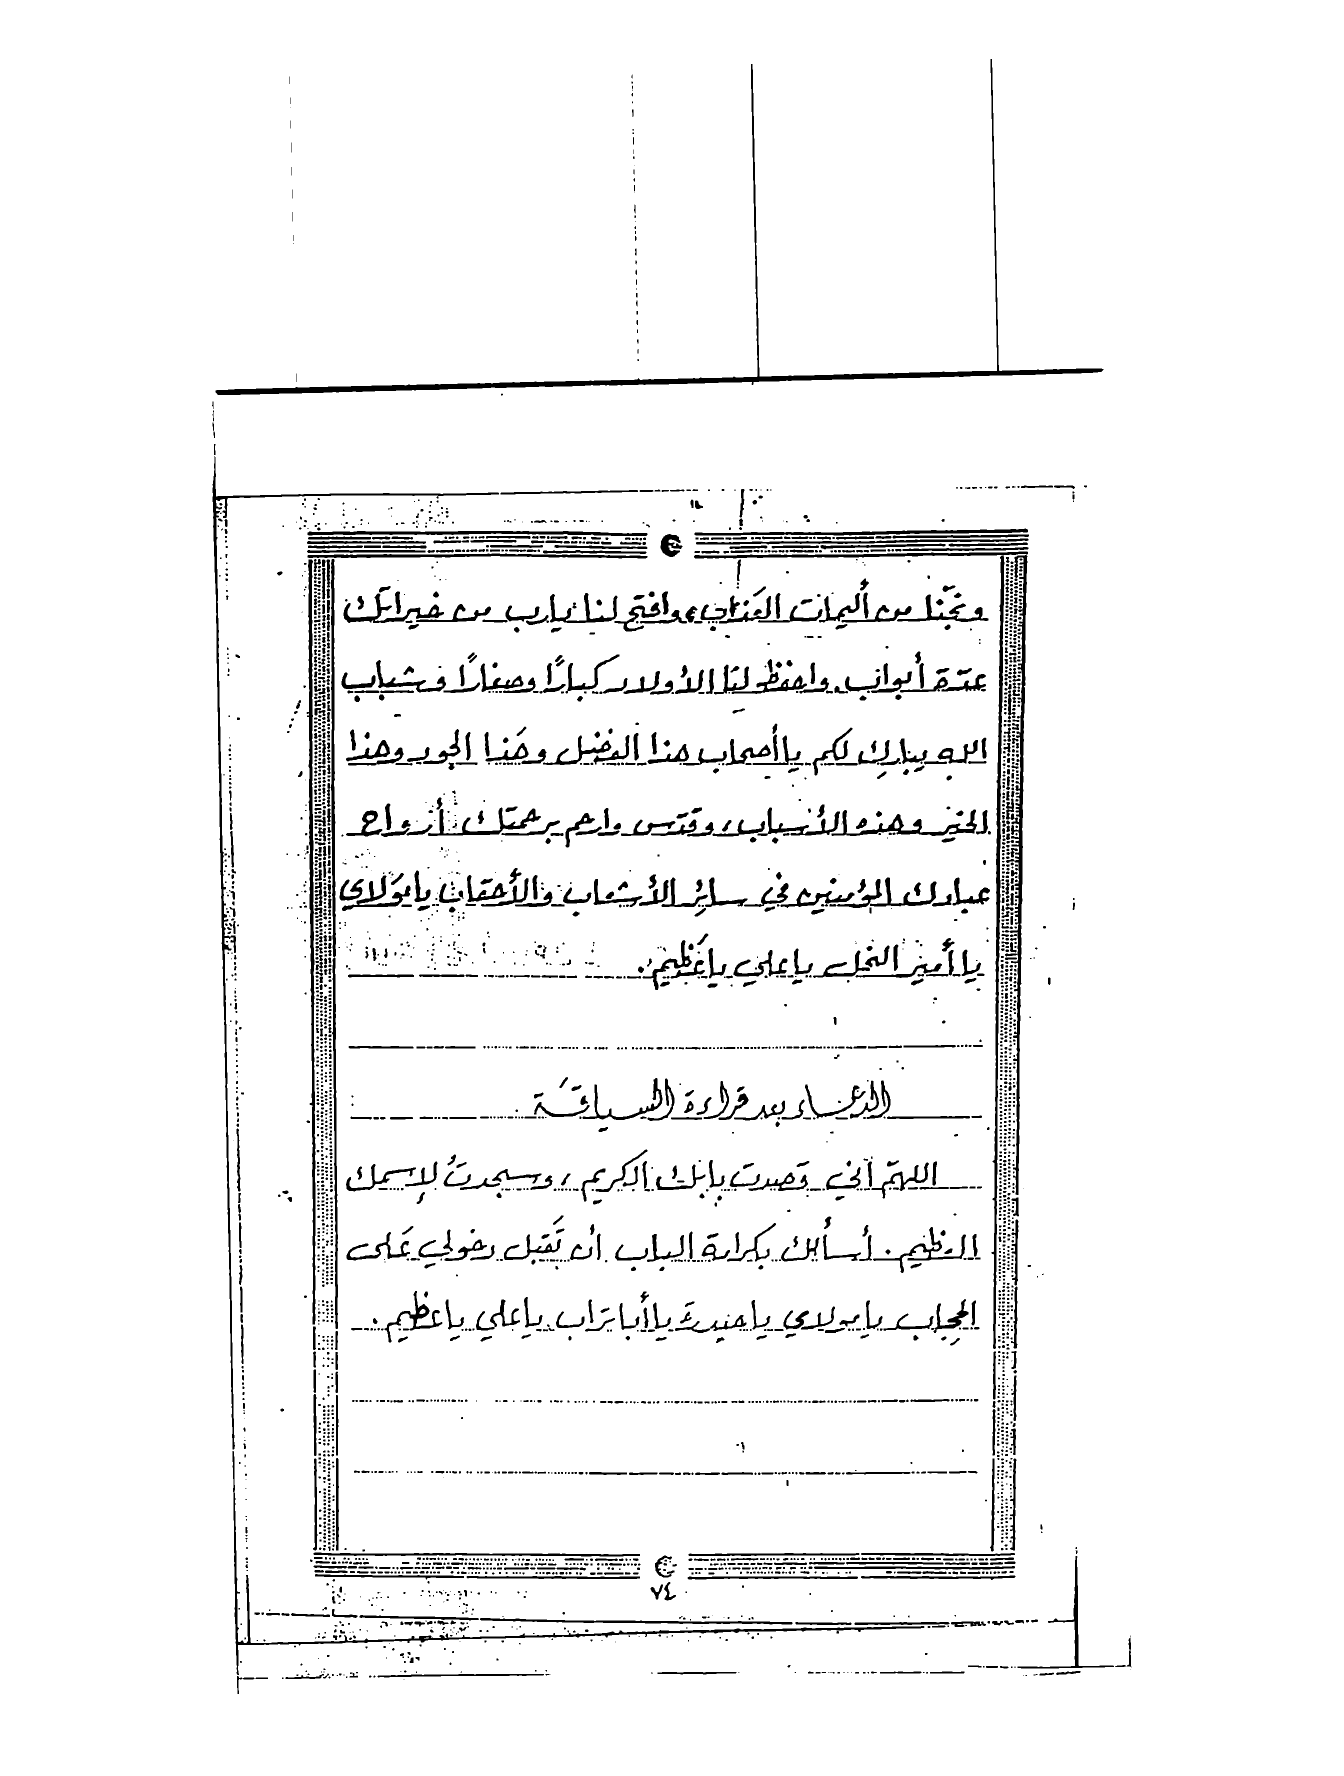 ونجّنا من أليمات العَذاب، وافتح لنا يارب من خيراتك
عدّة أبواب. واحفظ لنا الأولاد كبارًا وصغارًا وشباب
الله يبارك لكم ياأصحاب هذا الفضل وهَذا الجود وهذا
الخير وهذه الأسباب، وقدّس وارحم برحمتك أرواح
عبادك المؤمنين في سائر الأشعاب والأحقاب يامَولاي
ياأمير النحل ياعلي ياعَظيم.
الدعاء بعد قراءة السياقَة
اللهمّ اني قَصدت بابك الكريم، وسجدتُ لإسمك
العظيم. أسألك بكرامة الباب ان تَقبل دخولي عَلى
الحِجاب يامولاي ياحيدرة ياأباتراب ياعلي ياعظيم.
٧٤